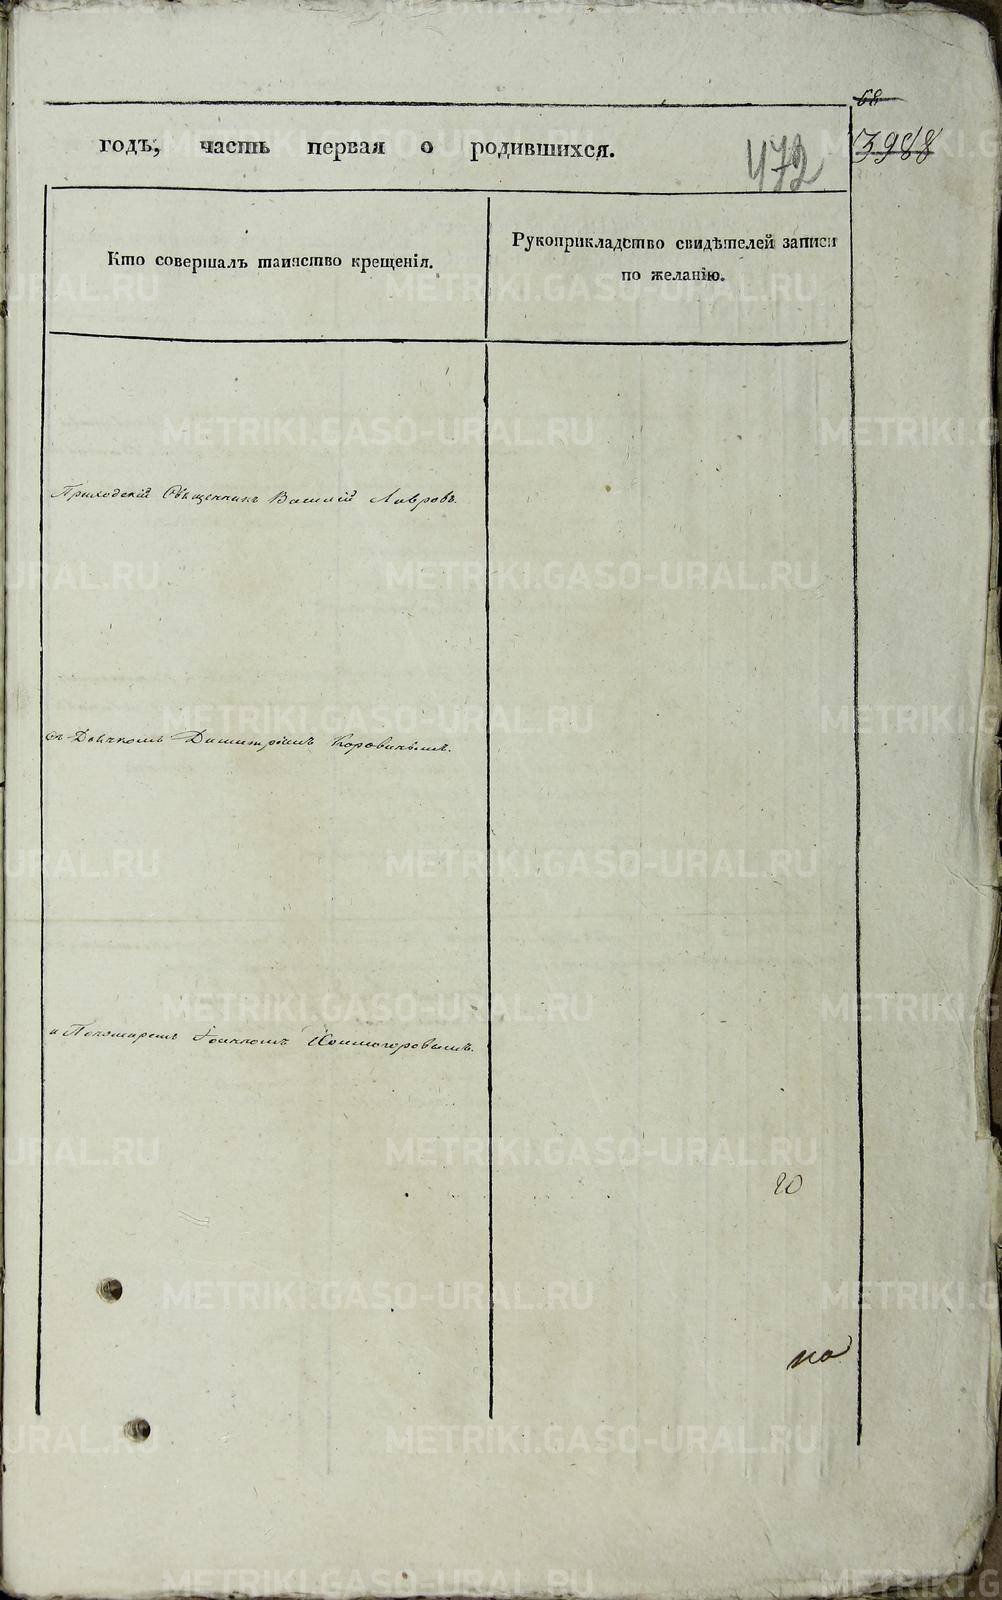 68
годъ, часть первая о родившихся.
472
3988
Кто совершалъ таинство крещенія.
Рукоприкладство свидѣтелей записи
по желанію.
Приходскій Священникъ Василій Лавровъ.
съ Дьячкомъ Димитріемъ Коровинымъ.
и Пономаремъ Іоанномъ Холмогоровымъ.
20
на
METRIKI.GASO-URAL.RU